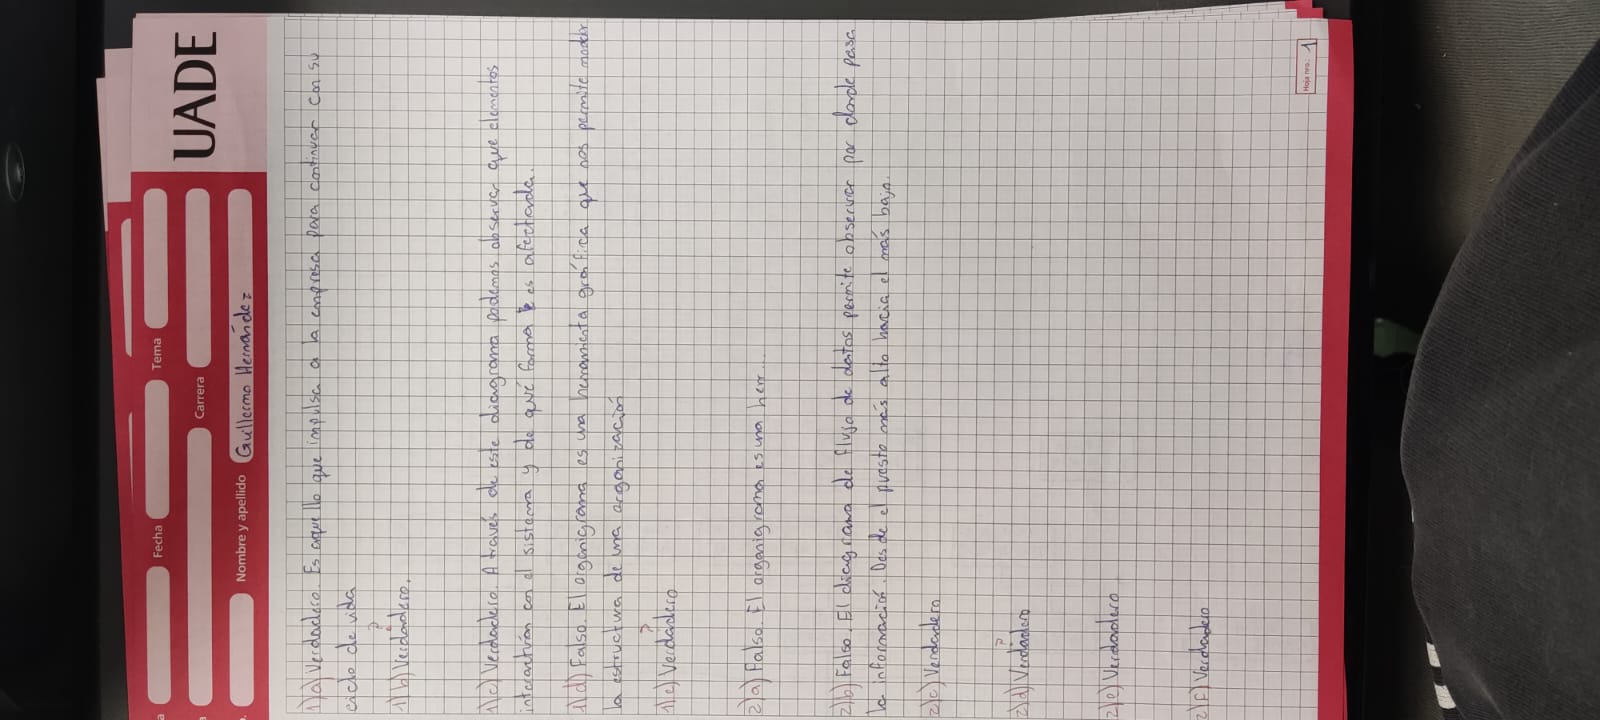 a Fecha Tema
UADE
a Carrera
o. Nombre y apellido Guillermo Hernández
1)a) Verdadero. Es aquello que impulsa a la empresa para continuar con su
ciclo de vida
?
1)b) Verdadero.
1)c) Verdadero. A través de este diagrama podemos observar que elementos
interactúan con el sistema y de qué forma es afectada.
1)d) Falso. El organigrama es una herramienta gráfica que nos permite modelar
la estructura de una organización
?
1)e) Verdadero
2)a) Falso. El organigrama es una herr...
2)b) Falso. El diagrama de flujo de datos permite observar por donde pasa
la información. Desde el puesto más alto hacia el más bajo.
2)c) Verdadero
?
2)d) Verdadero
2)e) Verdadero
2)f) Verdadero
Hoja nro.: 1